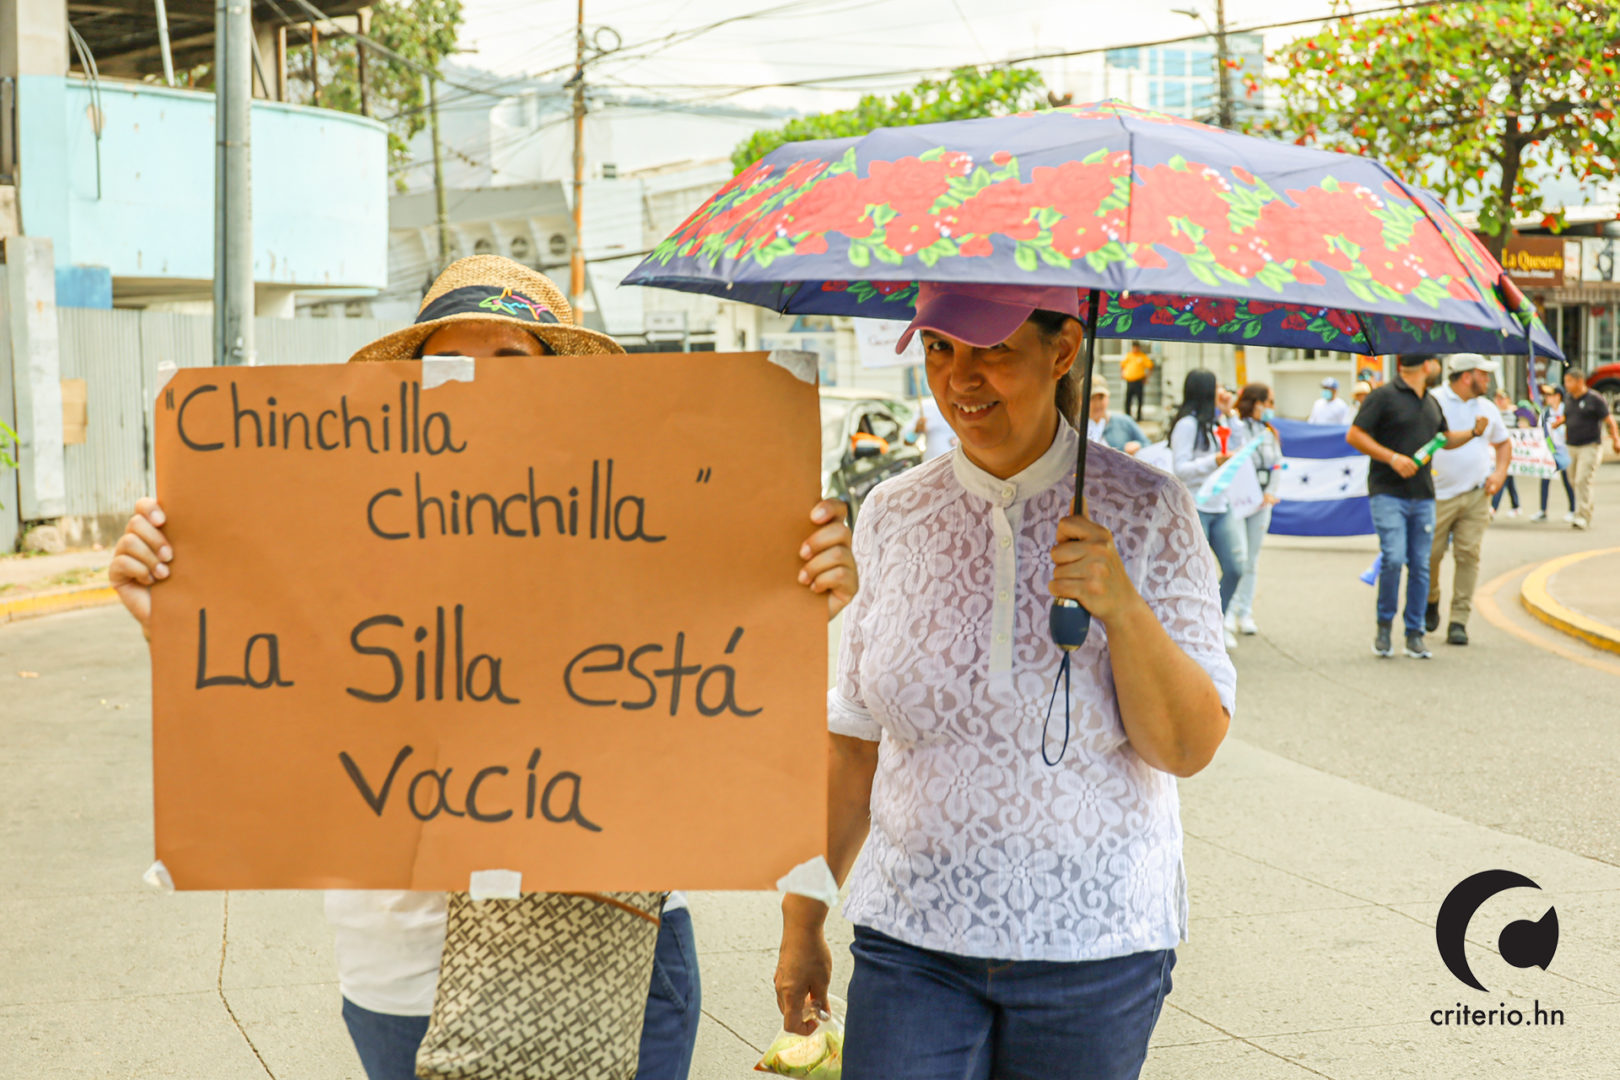 "Chinchilla
chinchilla"
La Silla está
Vacía
La Quesería
criterio.hn